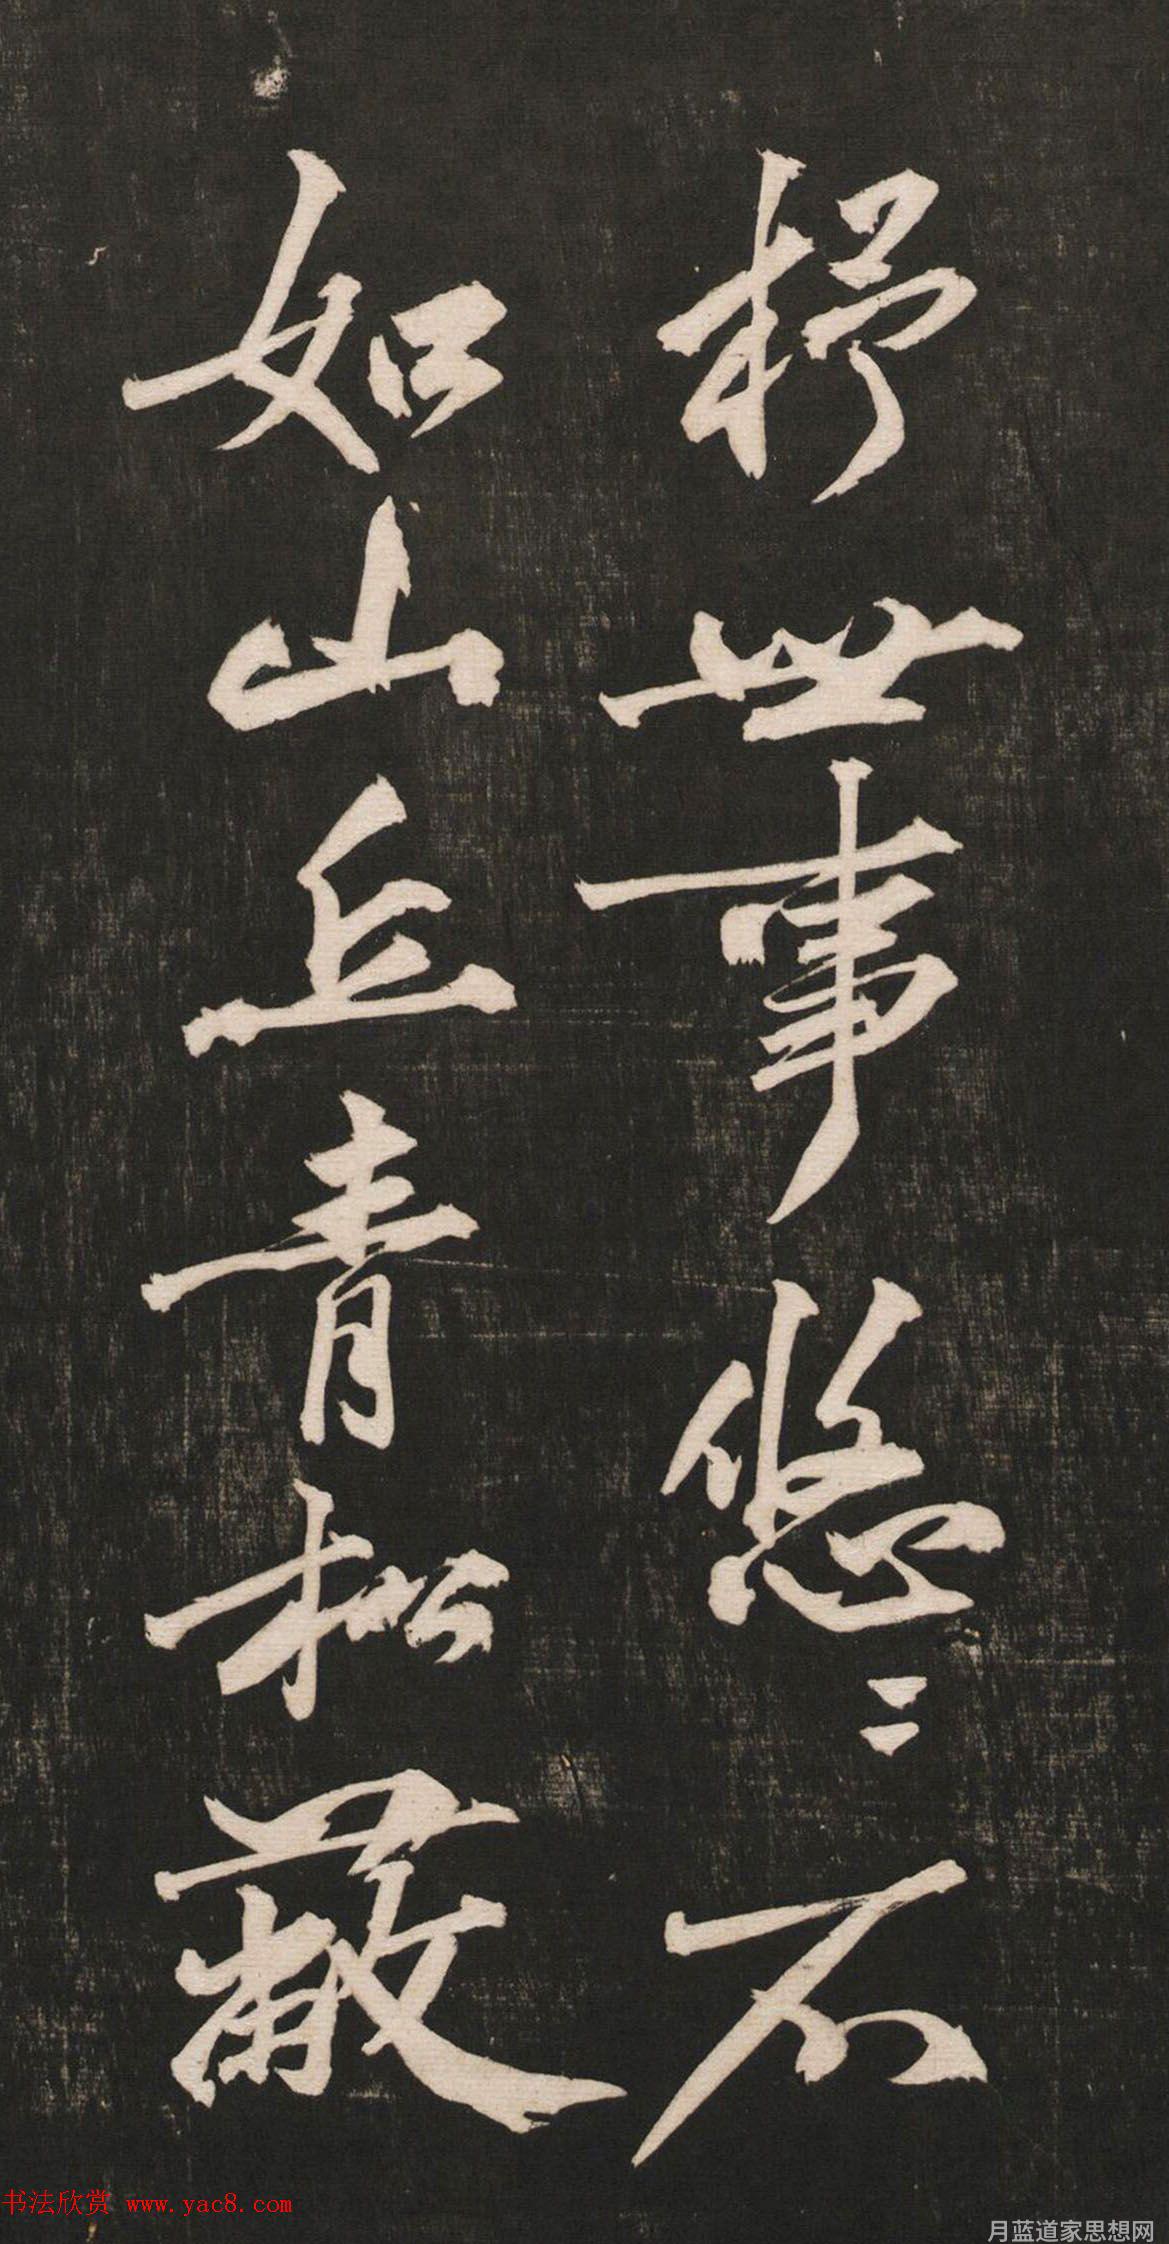 杼世事悠〻不
如山丘青松蔽
书法欣赏 www.yac8.com
月蓝道家思想网